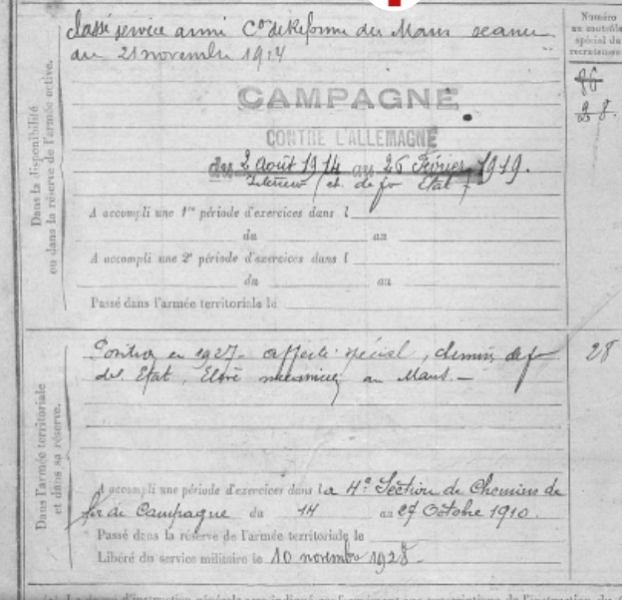 Classé service armé Con de Réforme du Mans séance
du 21 novembre 1914
Numéro
au contrôle
spécial du
recrutement
86
98.
Dans la disponibilité
ou dans la réserve de l'armée active.
CAMPAGNE
CONTRE L'ALLEMAGNE
du 2 Août 1914 au 26 Février 1919.
Intérieur (ch. de fer Etat)
A accompli une 1re période d'exercices dans l
du au
A accompli une 2e période d'exercices dans l
du au
Passé dans l'armée territoriale le
Dans l'armée territoriale
et dans sa réserve.
en 1927 affecté spécial, chemins de fer
de l'Etat, Elève au Mans.
28
A accompli une période d'exercices dans la 4e Section de Chemins de
fer de Campagne du 14 au 27 Octobre 1910.
Passé dans la réserve de l'armée territoriale le
Libéré du service militaire le 10 novembre 1928.